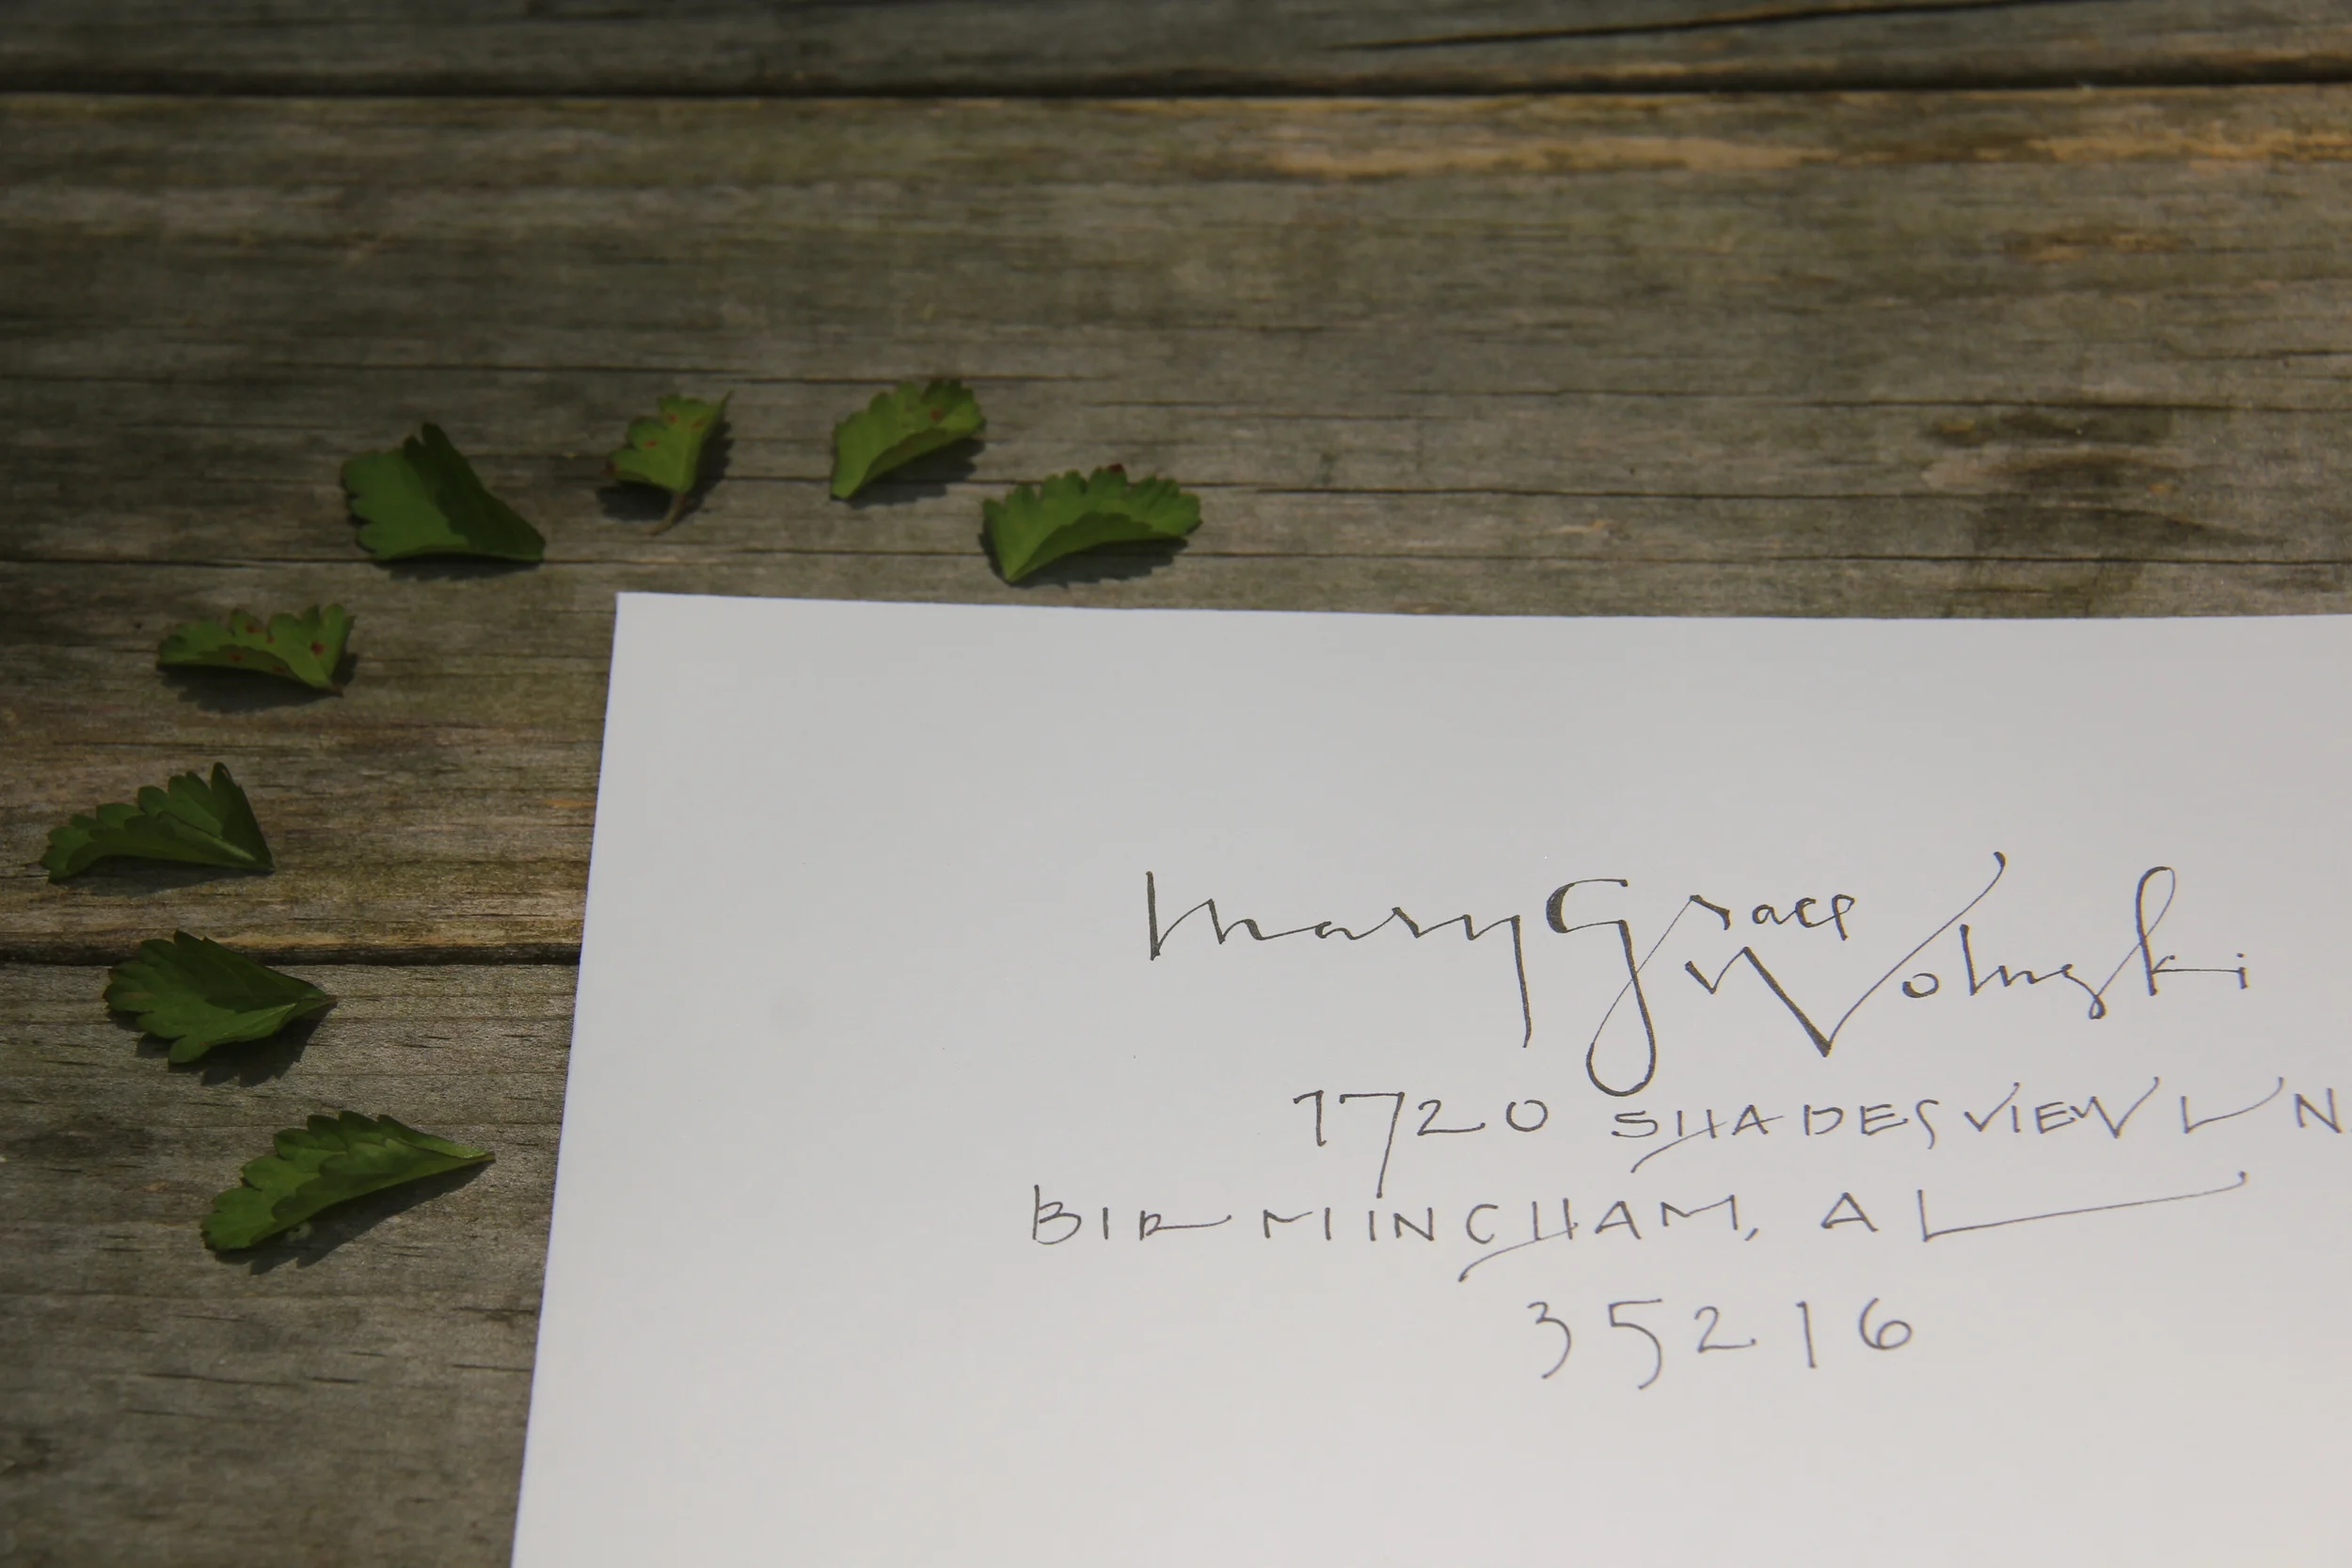 Mary Grace Wolnski
1720 SHADESVIEW LN.
BIRMINGHAM, AL
35216